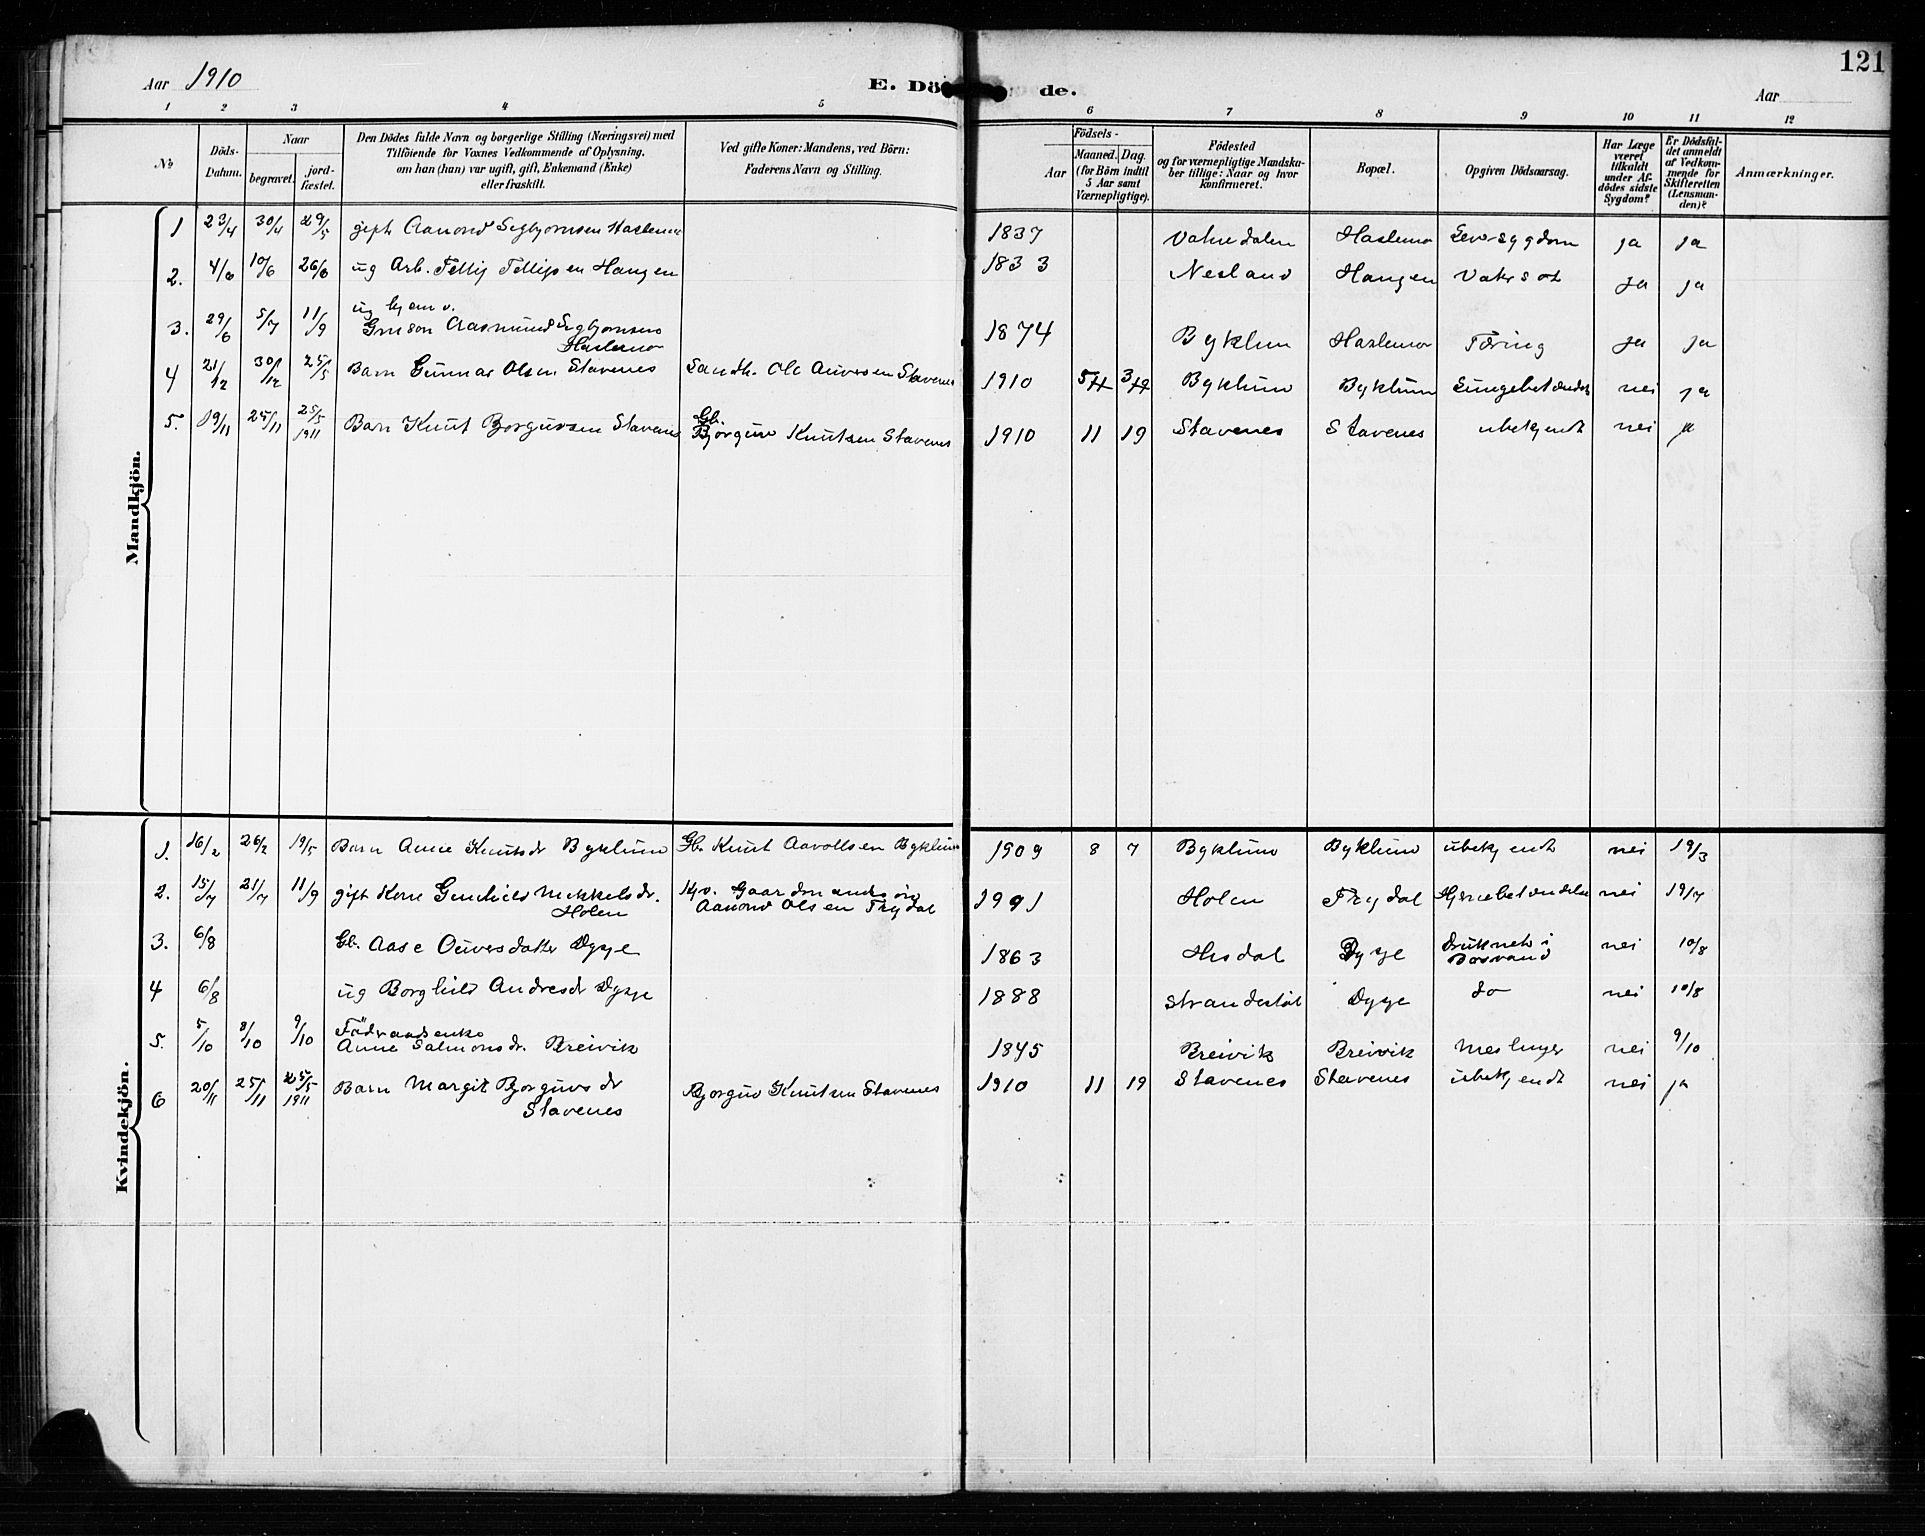 Aar 1910
E. Dö de.
121
Aar
1 2 3 4 5 6 7 8 9 10 11 12
No
Döds-Datum.
Naar
begravet. jord-fæstet.
Den Dödes fulde Navn og borgerlige Stilling (Næringsvei) med
Tilföiende for Voxnes Vedkommende af Oplysning.
om han (hun) var ugift, gift, Enkemand (Enke)
eller fraskilt.
Ved gifte Koner: Mandens, ved Börn:
Faderens Navn og Stilling.
Födsels-
Aar
Maaned. Dag.
(for Börn indtil
5 Aar samt
Værnepligtige).
Födested
og for værnepligtige Mandska-
ber tillige: Naar og hvor
konfirmeret.
Bopæl.
Opgiven Dödsaarsag.
Har Læge
været
tilkaldt
under Af-
dödes sidste
Sygdom?
Er Dödsfal-
det anmeldt
af Vedkom-
mende for
Skifteretten
(Lensman-
den)?
Anmærkninger.
Mandkjön.
1 23/4 30/4 29/5 gift Aanond Sigbjornsen Haslemo 1837 Vatnedalen Haslemo Lev-sygdom ja ja
2. 4/6 10/6 26/6 ug Arb. Fellip Fellipsen Haugen 1833 Nesland Haugen Vatrsot ja ja
3. 29/6 5/7 11/9 ug hjemv.
Grueson Aasmund Sigbjornsens
Haslemo 1874 Byklum Haslemo Tæring ja ja
4 21/12 30/12 25/5 Barn Gunnar Olsen Stavenes Sandh. Ole Auversen Stavenes 1910 Byklum Byklum Lungebetændels nei ja
5. 19/11 25/11 25/5 1911 Barn Knut Bjorguvsen Stavenes Gb.
Bjorguv Knutsen Stavenes 1910 11 19 Stavenes Stavenes ubekjendt nei ja
Kvindekjön.
1. 16/2 26/2 19/5 Barn Anne Knutsdr Byklum Gb. Knut Aavoldsen Byklum 1909 8 7 Byklum Byklum ubekjendt nei 19/3
2. 15/7 21/7 11/9 gift Kone Gunhild Mikkelsdr.
Holen Kjv. Gaardmandssön
Aanond Olsen Trydal 1991 Holen Trydal Hjernebetændelse nei 19/7
3. 6/8 Gb. Aase Ouversdatter Dyge 1863 Hisdal Dyge Druknet i
Bosvand nei 10/8
4 6/8 ug Borghild Andresdr Dyge 1888 Strandestöl Dyge do nei 10/8
5. 5/10 8/10 9/10 Födraadsenke
Anne Salmonsdr. Breivik 1845 Breivik Breivik Meslinger nei 9/10
6 20/11 25/11 25/5 1911 Barn Margit Bjorguvsdr
Stavenes Bjorguv Knutsen Stavenes 1910 11 19 Stavenes Stavenes ubekjendt nei ja